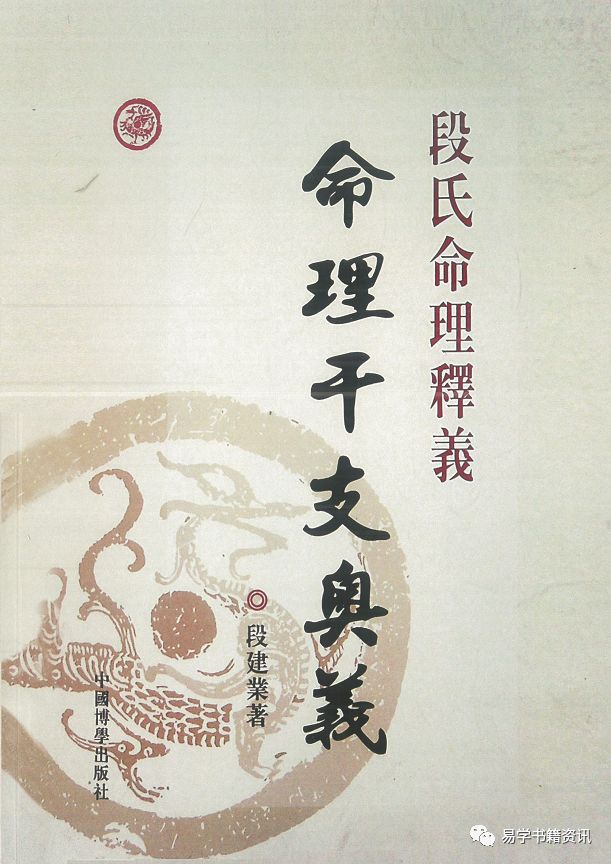 段氏命理釋義
命理干支奥義
◎段建業著
中國博學出版社
易学书籍资讯